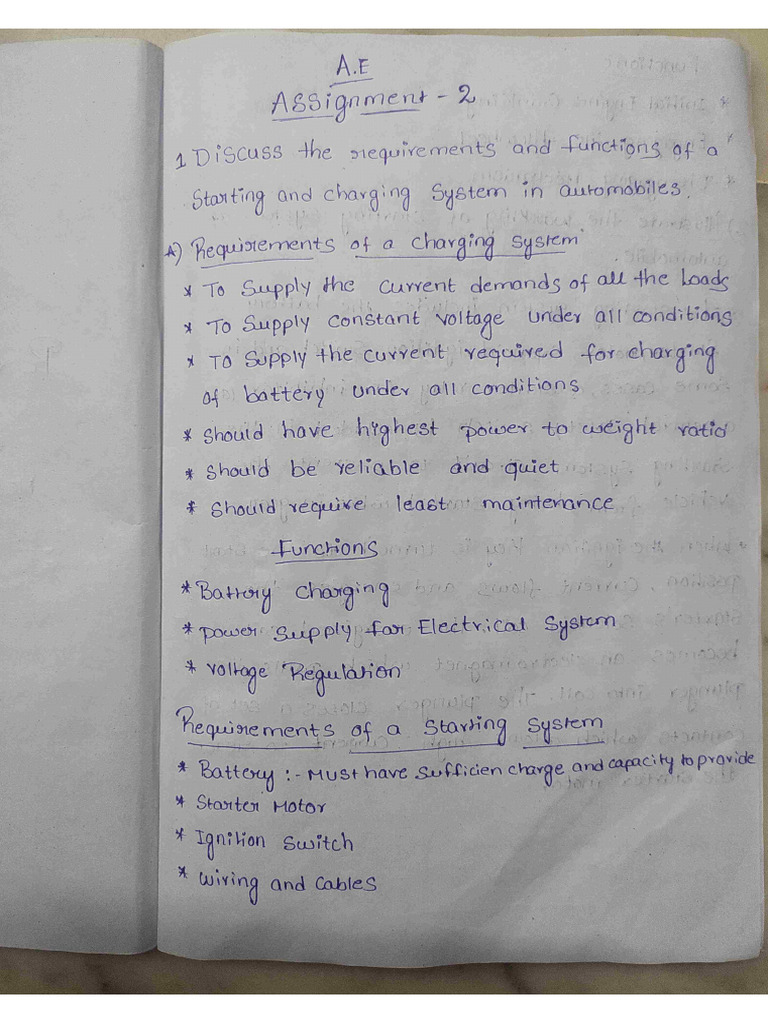 A.E
Assignment - 2
1 Discuss the requirements and functions of a
Starting and charging System in automobiles.
A) Requirements of a charging system
* To Supply the current demands of all the Loads
* To Supply constant voltage under all conditions
* To Supply the current required for charging
of battery under all conditions
* Should have highest power to weight ratio
* Should be reliable and quiet
* Should require least maintenance
Functions
* Battery charging
* power supply for Electrical System
* voltage Regulation
Requirements of a Starting System
* Battery :- Must have sufficien charge and capacity to provide
* Starter Motor
* Ignition Switch
* wiring and Cables